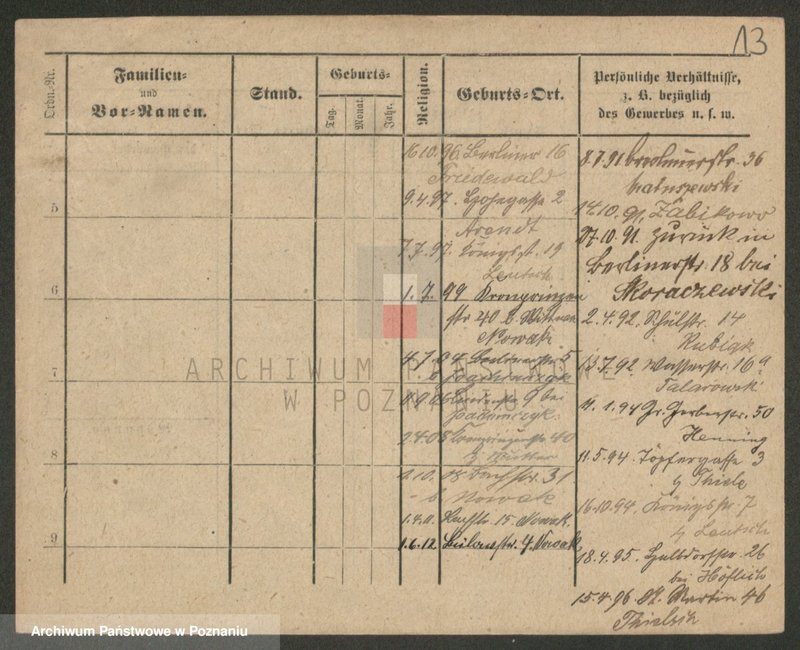 13
Ordn.-Nr.
Familien-
und
Vor-Namen.
Stand.
Geburts-
Tag.
Monat.
Jahr.
Religion.
Geburts-Ort.
Persönliche Verhältnisse,
z. B. bezüglich
des Gewerbes u. s. w.
5
6
7
8
9
16.10.96 Berliner 16
Friedewald
9.4.97. 2
Arendt
7.7.97. Königstr. 19
1.7.99 Kronprinzen
str 40 b.
Nowak
4.7.04 Berlinerstr 5
9 bei
Kronprinzenstr 40
31
Nowak
1.4.11. 15. Nowak.
1.6.12. Bülowstr. 4. Nowak
8.7.91 36
Matuszewski
14.10.91. Zabikowo
27.10.91. Zurück in
Berlinerstr. 18 bei
Skoraczewski
2.4.92. Schulstr. 14
Kubiak
Wasserstr. 16a
Talarowski
11.1.94 Gr. Gerberstr. 50
Henning
11.5.94. Töpfergasse 3
b Thiele
16.10.94. Königsstr. 7
18.4.95. 26
bei Höflich
15.4.96 St. Martin 46
ARCHIWUM PAŃSTWOWE
W POZNANIU
Archiwum Państwowe w Poznaniu